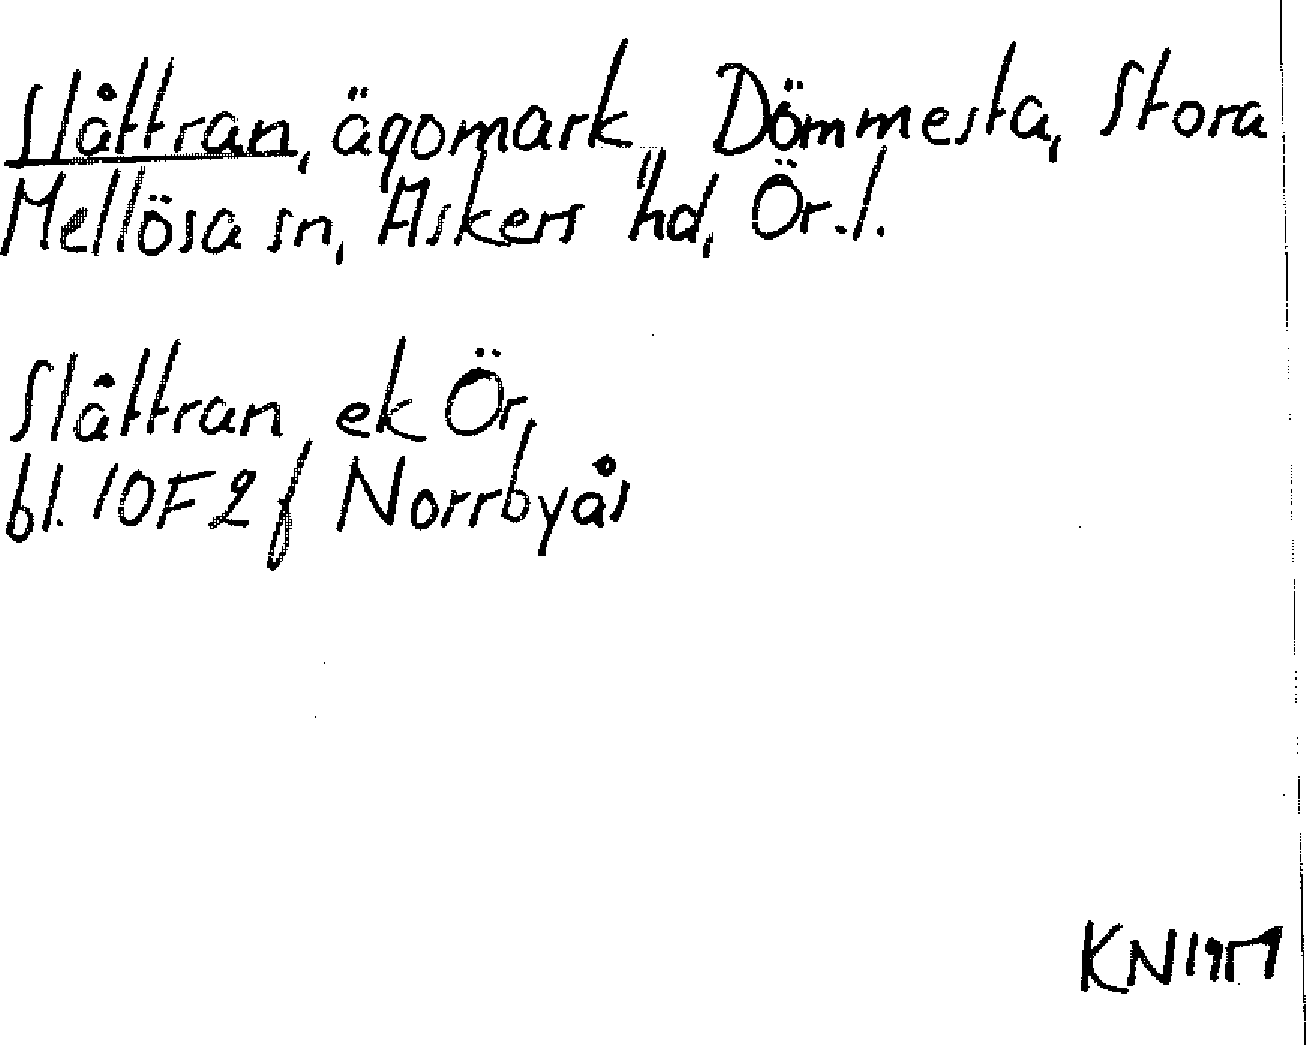 Slåttran, ägomark, Dömmesta, Stora
Mellösa sn, Askers hd, Ör. l.
Slåttran, ek Ör,
bl. 10F2f Norrbyås
KN